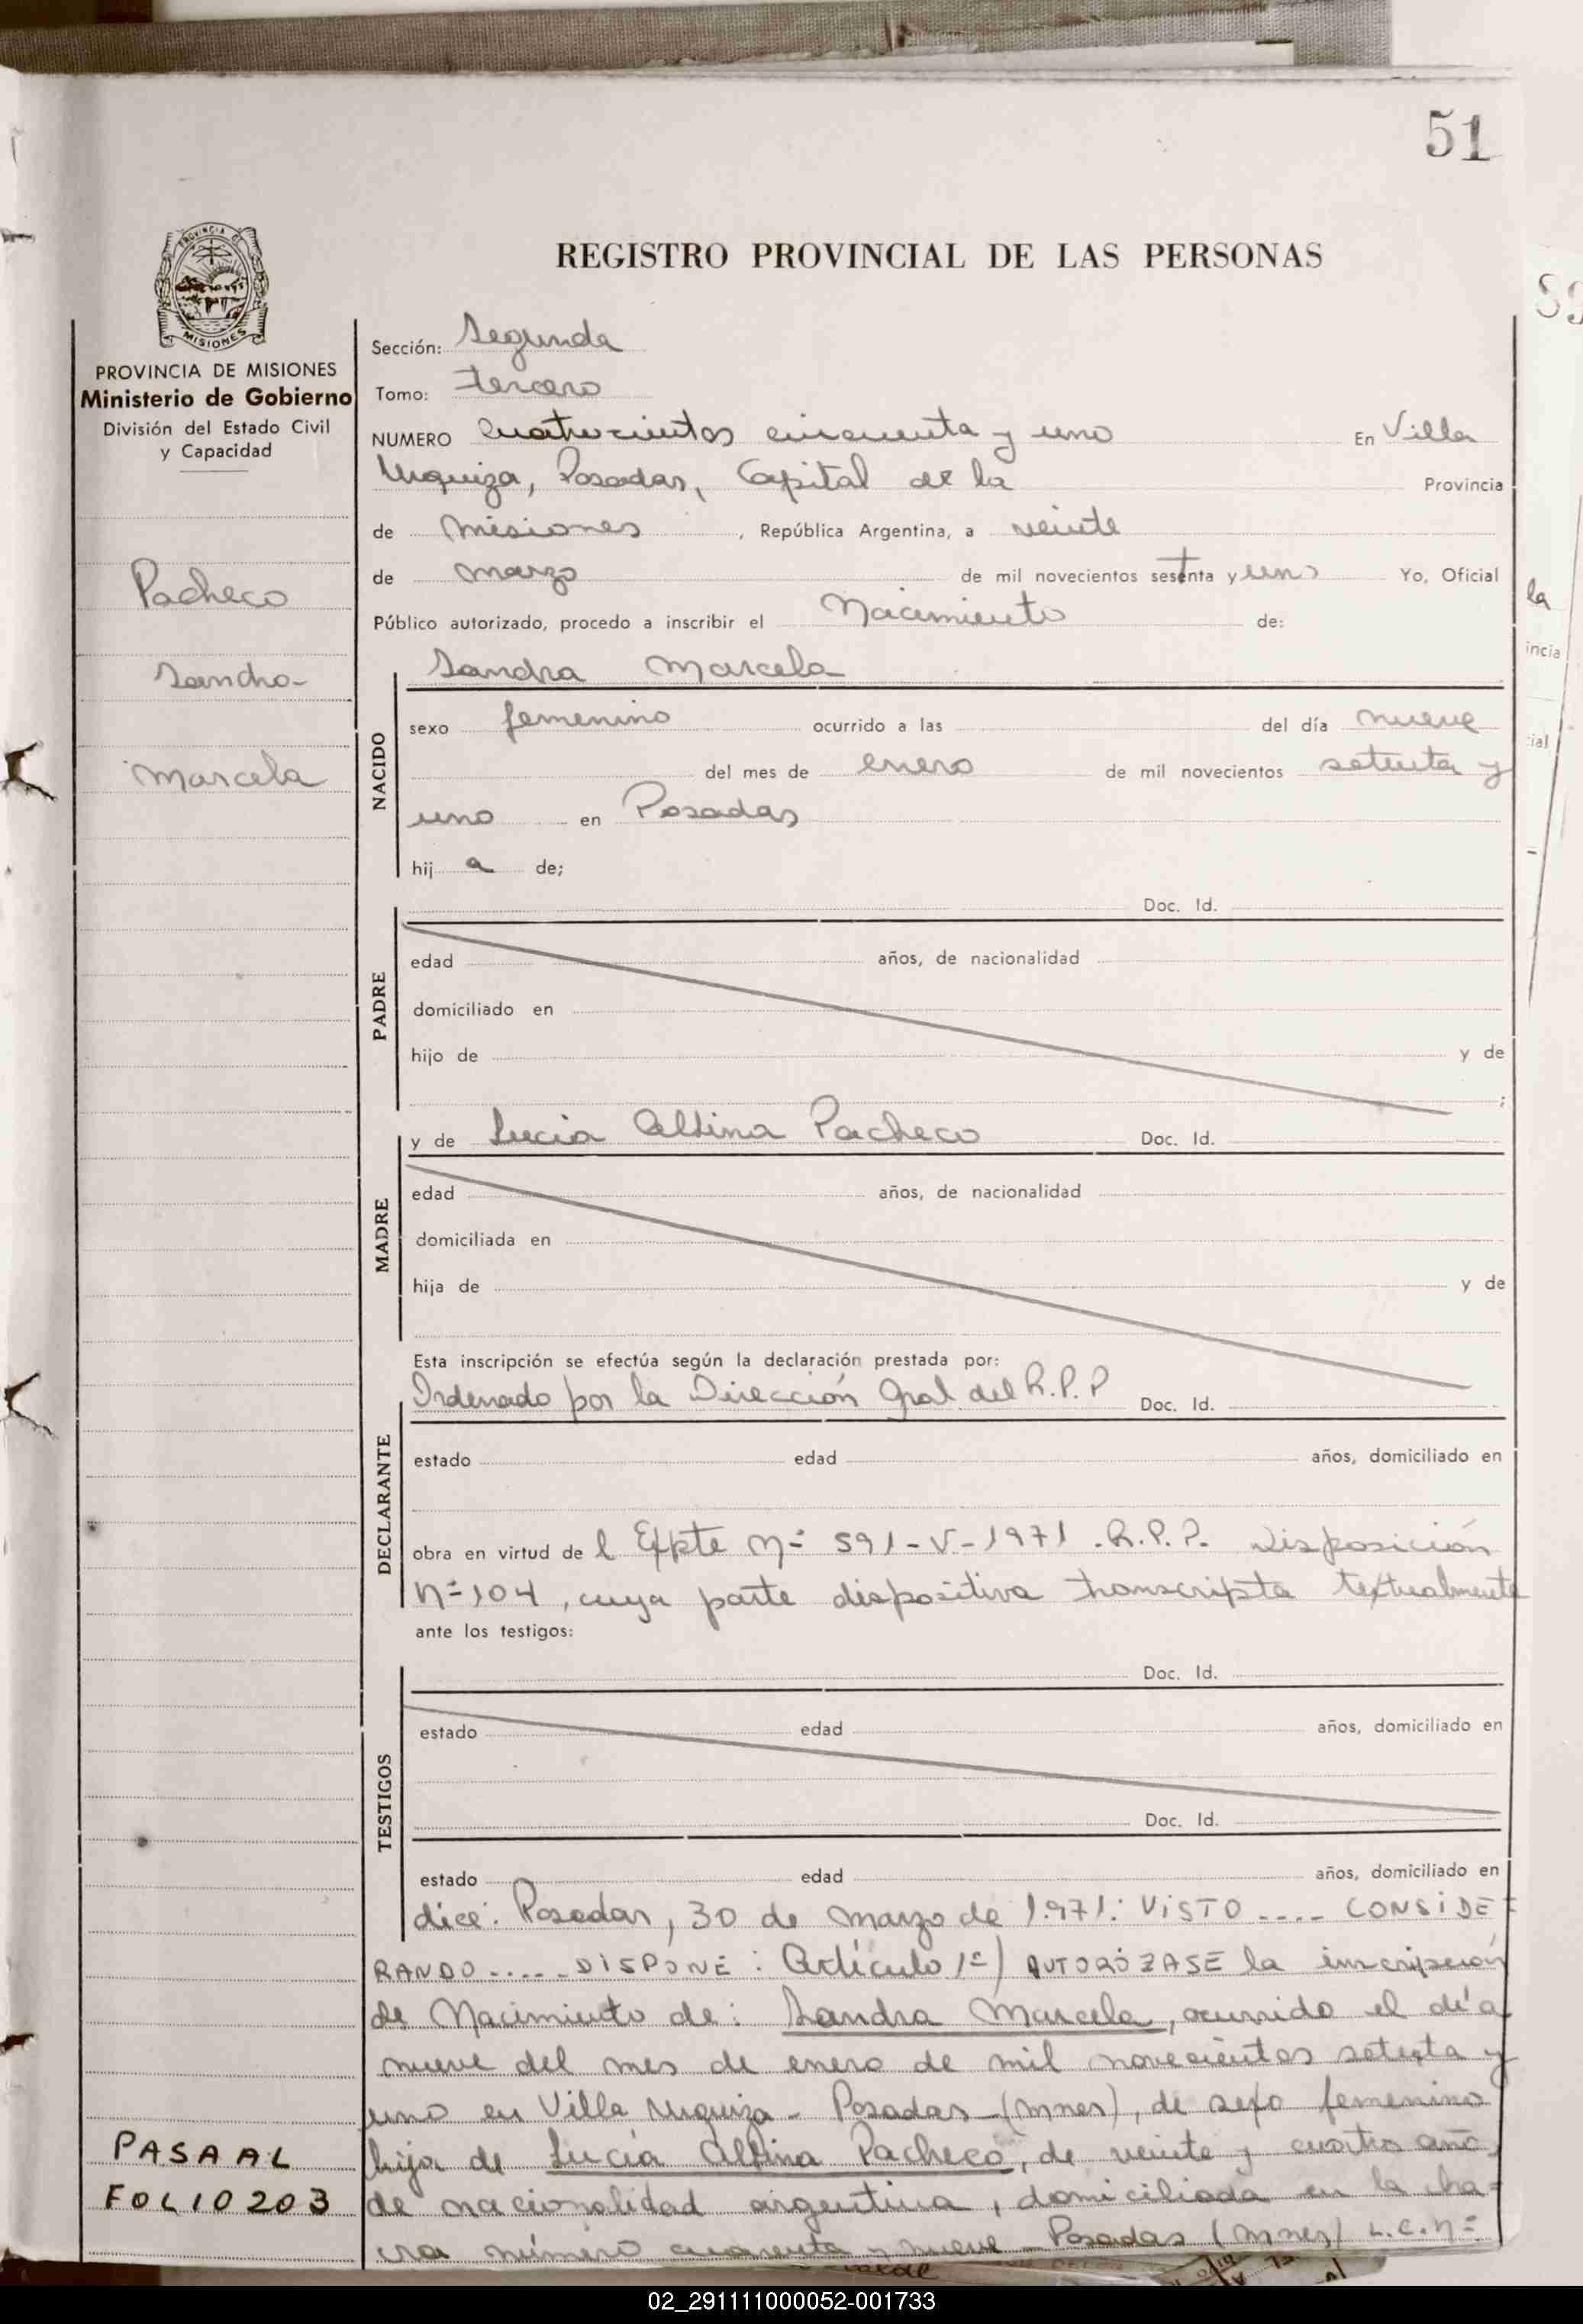 51
REGISTRO PROVINCIAL DE LAS PERSONAS
PROVINCIA DE MISIONES
PROVINCIA DE MISIONES
Ministerio de Gobierno
División del Estado Civil
y Capacidad
Pacheco
Sandra
Marcela
Sección: Segunda
Tomo: tercero
NUMERO Cuatrocientos cincuenta y uno En Villa
Urquiza, Posadas, Capital de la Provincia
de Misiones, República Argentina, a veinte
de marzo de mil novecientos setenta y uno Yo, Oficial
Público autorizado, procedo a inscribir el Nacimiento de:
Sandra Marcela
NACIDO
sexo femenino ocurrido a las del día nueve
del mes de enero de mil novecientos setenta y
uno en Posadas
hij a de;
PADRE
Doc. Id.
edad años, de nacionalidad
domiciliado en
hijo de y de
;
MADRE
y de Lucia Albina Pacheco Doc. Id.
edad años, de nacionalidad
domiciliada en
hija de y de
Esta inscripción se efectúa según la declaración prestada por:
Ordenado por la Dirección Gral del R.P.P Doc. Id.
DECLARANTE
estado edad años, domiciliado en
obra en virtud de l Expte Nº 591-V-1971.R.P.P. Disposición
Nº 104, cuya parte dispositiva transcripta textualmente
ante los testigos:
TESTIGOS
Doc. Id.
estado edad años, domiciliado en
Doc. Id.
estado edad años, domiciliado en
dice: Posadas, 30 de marzo de 1.971: VISTO .... CONSIDE
RANDO ..... DISPONE: Artículo 1º) AUTORÍZASE la inscripción
de Nacimiento de: Sandra Marcela, ocurrido el día
nueve del mes de enero de mil novecientos setenta y
uno en Villa Urquiza - Posadas - (Mnes), de sexo femenino
hija de Lucía Albina Pacheco, de veinte y cuatro año,
de nacionalidad argentina, domiciliada en la cha=
cra número cuarenta y nueve - Posadas (Mnes) L.C. Nº
PASA AL
FOLIO 203
la
incia
cial
02_291111000052-001733